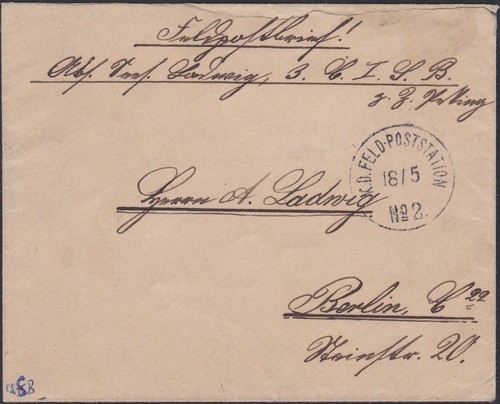 Feldpostbrief!
Abs. Sees. Ladwig, 3. C. I. S. B.
z. Z. Peking
K.D. FELD-POSTSTATION
18/5
No 2.
Herrn A. Ladwig
Berlin, C 22
Steinstr. 20.